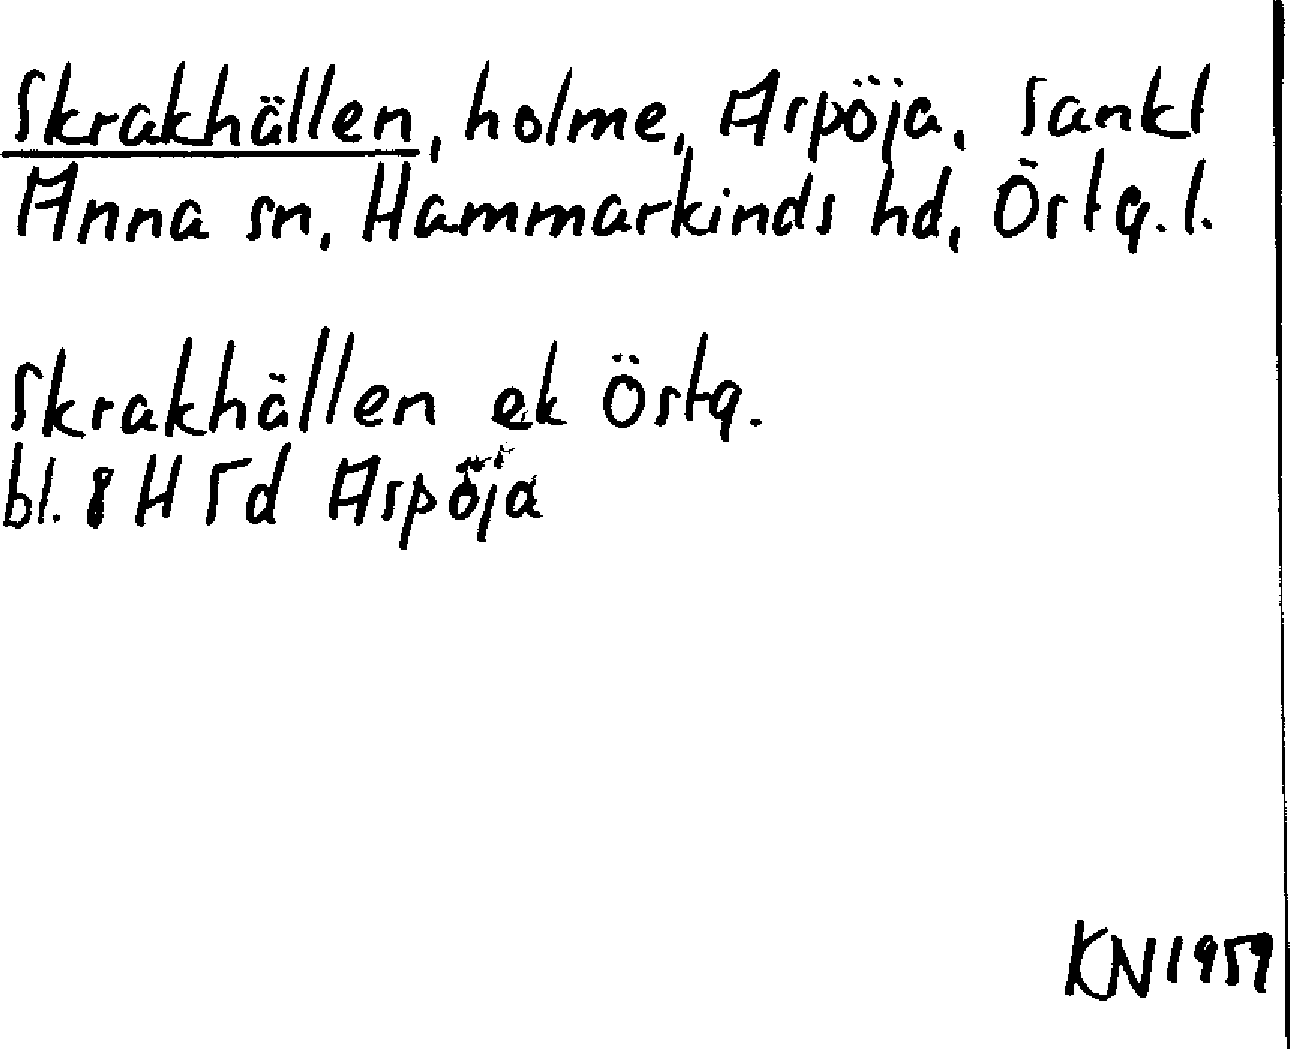 Skrakhällen, holme, Aspöja, Sankt
Anna sn, Hammarkinds hd, Östg. l.
Skrakhällen ek Östg.
bl. 8 H 5d Aspöja
KN 1959